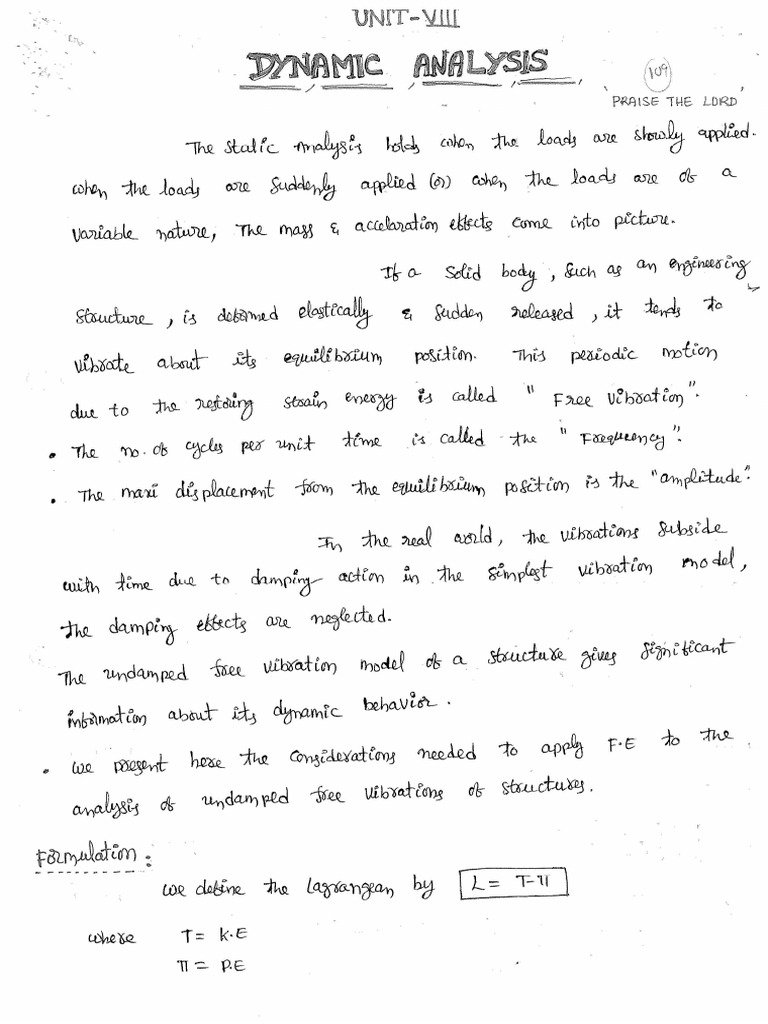 UNIT-VIII
DYNAMIC ANALYSIS
109
PRAISE THE LORD
The static analysis holds when the loads are slowly applied.
when the loads are suddenly applied (or) when the loads are of a
variable nature, The mass & accelaration effects come into picture.
If a solid body, such as an engineering
structure, is deformed elastically & sudden released, it tends to
vibrate about its equilibrium position. This periodic motion
due to the restoring strain energy is called " Free vibration".
• The no. of cycles per unit time is called the " Frequency".
• The maxi displacement from the equilibrium position is the "amplitude".
In the real world, the vibrations subside
with time due to damping action in the simplest vibration model,
the damping effects are neglected.
The undamped free vibration model of a structure gives significant
information about its dynamic behavior.
• we present here the considerations needed to apply F.E to the
analysis of undamped free vibrations of structures.
Formulation:
we define the Lagrangean by L = T-π
where T = K.E
π = P.E